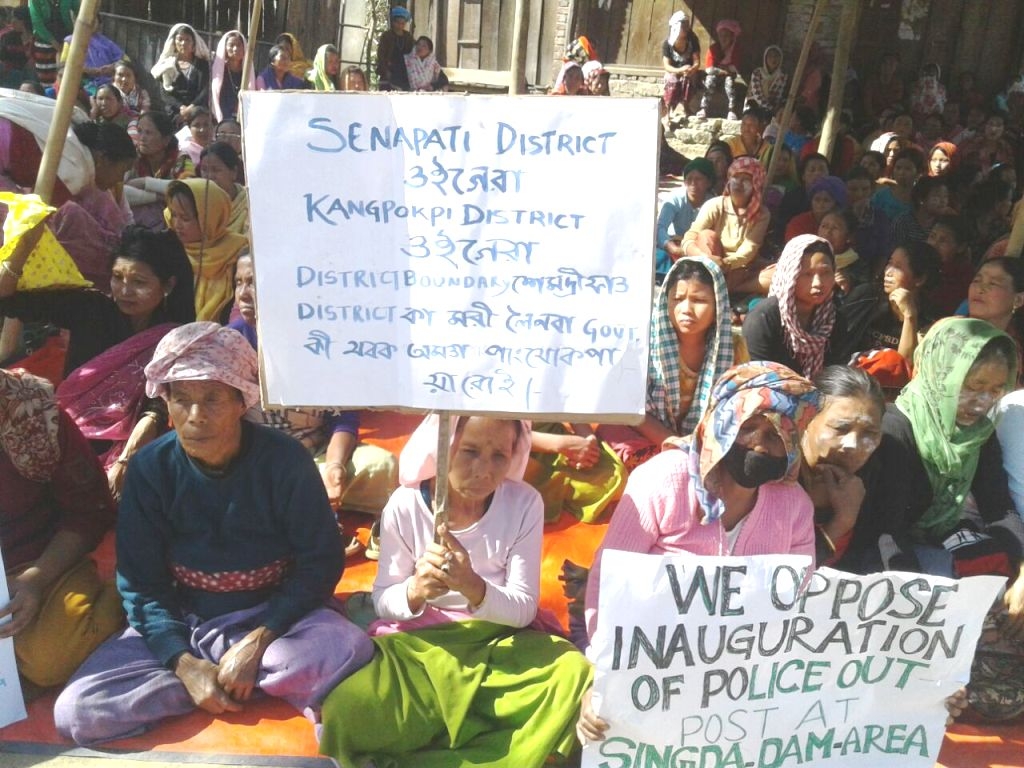 SENAPATI DISTRICT
ওইনেৰা
KANGPOKPI DISTRICT
ওইনেৰা
DISTRICT BOUNDARY
DISTRICT কা মরী লৈনবা GOVT.
কী থবক অমত্তা পাংথোকপা
য়ারোই।-
WE OPPOSE
INAUGURATION
OF POLICE OUT-
POST AT
SINGDA-DAM-AREA